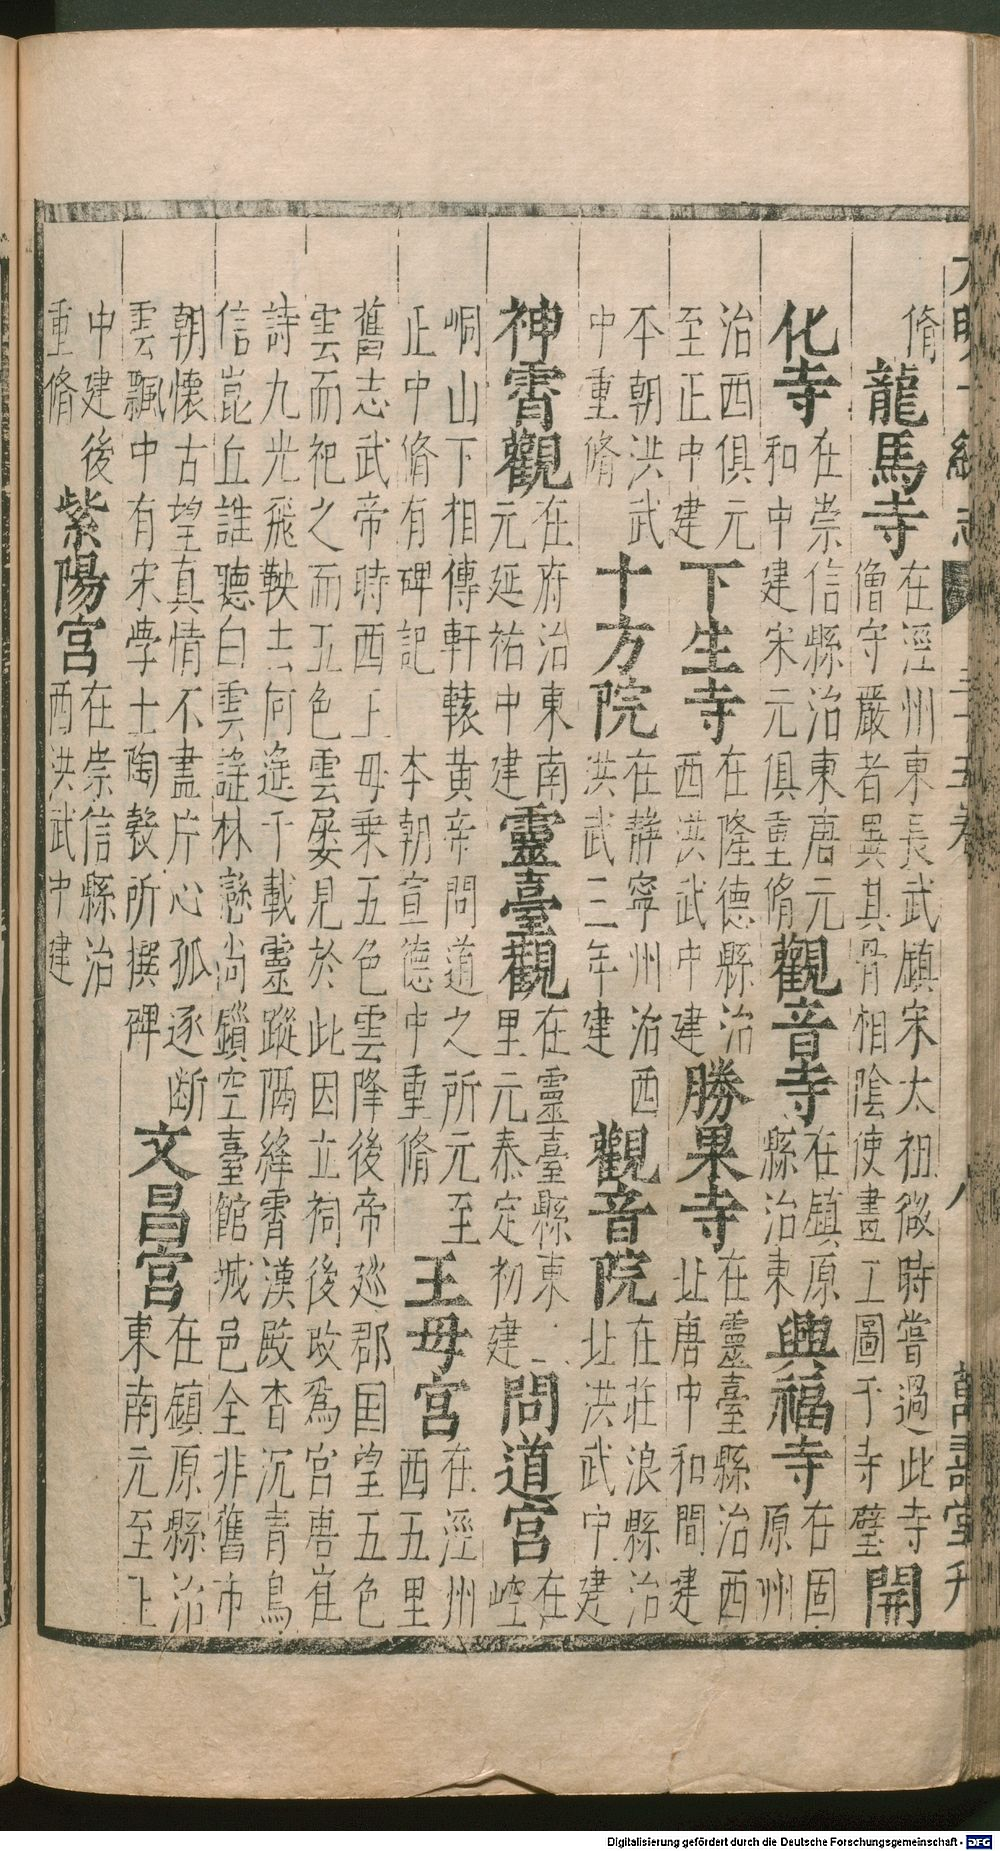 大明一統志 三十五卷 八 萬壽堂刊
脩
龍馬寺
在涇州東長武鎮宋太祖微時嘗過此寺
僧守嚴者異其骨相陰使畫工圖于寺壁
開
化寺
在崇信縣治東唐元
和中建宋元俱重脩
觀音寺
在鎮原
縣治東
興福寺
在固
原州
治西俱元
至正中建
下生寺
在隆德縣治
西洪武中建
勝果寺
在靈臺縣治西
北唐中和間建
本朝洪武
中重脩
十方院
在靜寧州治西
洪武三年建
觀音院
在莊浪縣治
北洪武中建
神霄觀
在府治東南
元延祐中建
靈臺觀
在靈臺縣東二
里元泰定初建
問道宮
在
崆
峒山下相傳軒轅黃帝問道之所元至
正中脩有碑記 本朝宣德中重脩
王母宮
在涇州
西五里
舊志武帝時西王母乗五色雲降後帝廵郡国望五色
雲而祀之而五色雲屡見於此因立祠後改為宮唐崔
詩九光飛鞅去何遥千載靈蹤隔絳霄漢殿杳沉青鳥
信崑丘誰聽白雲謡林巒尚鎖空臺館城邑全非舊市
朝懷古望真情不盡片心孤逐断
雲飄中有宋學士陶榖所撰碑
文昌宮
在鎮原縣治
東南元至正
中建後
重脩
紫陽宮
在崇信縣治
西洪武中建
Digitalisierung gefördert durch die Deutsche Forschungsgemeinschaft - DFG